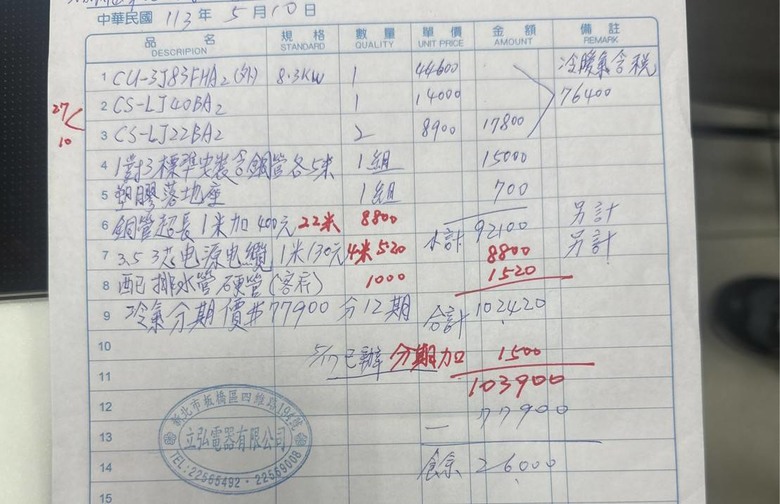 中華民國 113 年 5 月 10 日
品名 規格 數量 單價 金額 備註
DESCRIPION STANDARD QUALITY UNIT PRICE AMOUNT REMARK
1 CU-3J83FHA2(外) 8.3KW 1 44600 冷暖氣含稅
2 CS-LJ40BA2 1 14000 76400
27
10
3 CS-LJ22BA2 2 8900 17800
4 1對3標準安裝含銅管各5米 1組 15000
5 塑膠落地座 1組 700
小計 92100 另計
6 銅管超長1米加400元 22米 8800 8800 另計
7 3.5 3芯电源电纜1米130元 4米 520
8 配排水管硬管(客廳) 1000 1520
9 冷氣分期價#77900 分12期 合計 102420
10 5/17已辦 分期加 1500
11 103900
12 77900
13 一
14 餘 26000
15
新北市板橋區四維路194號
立弘電器有限公司
TEL:22565492・22569008